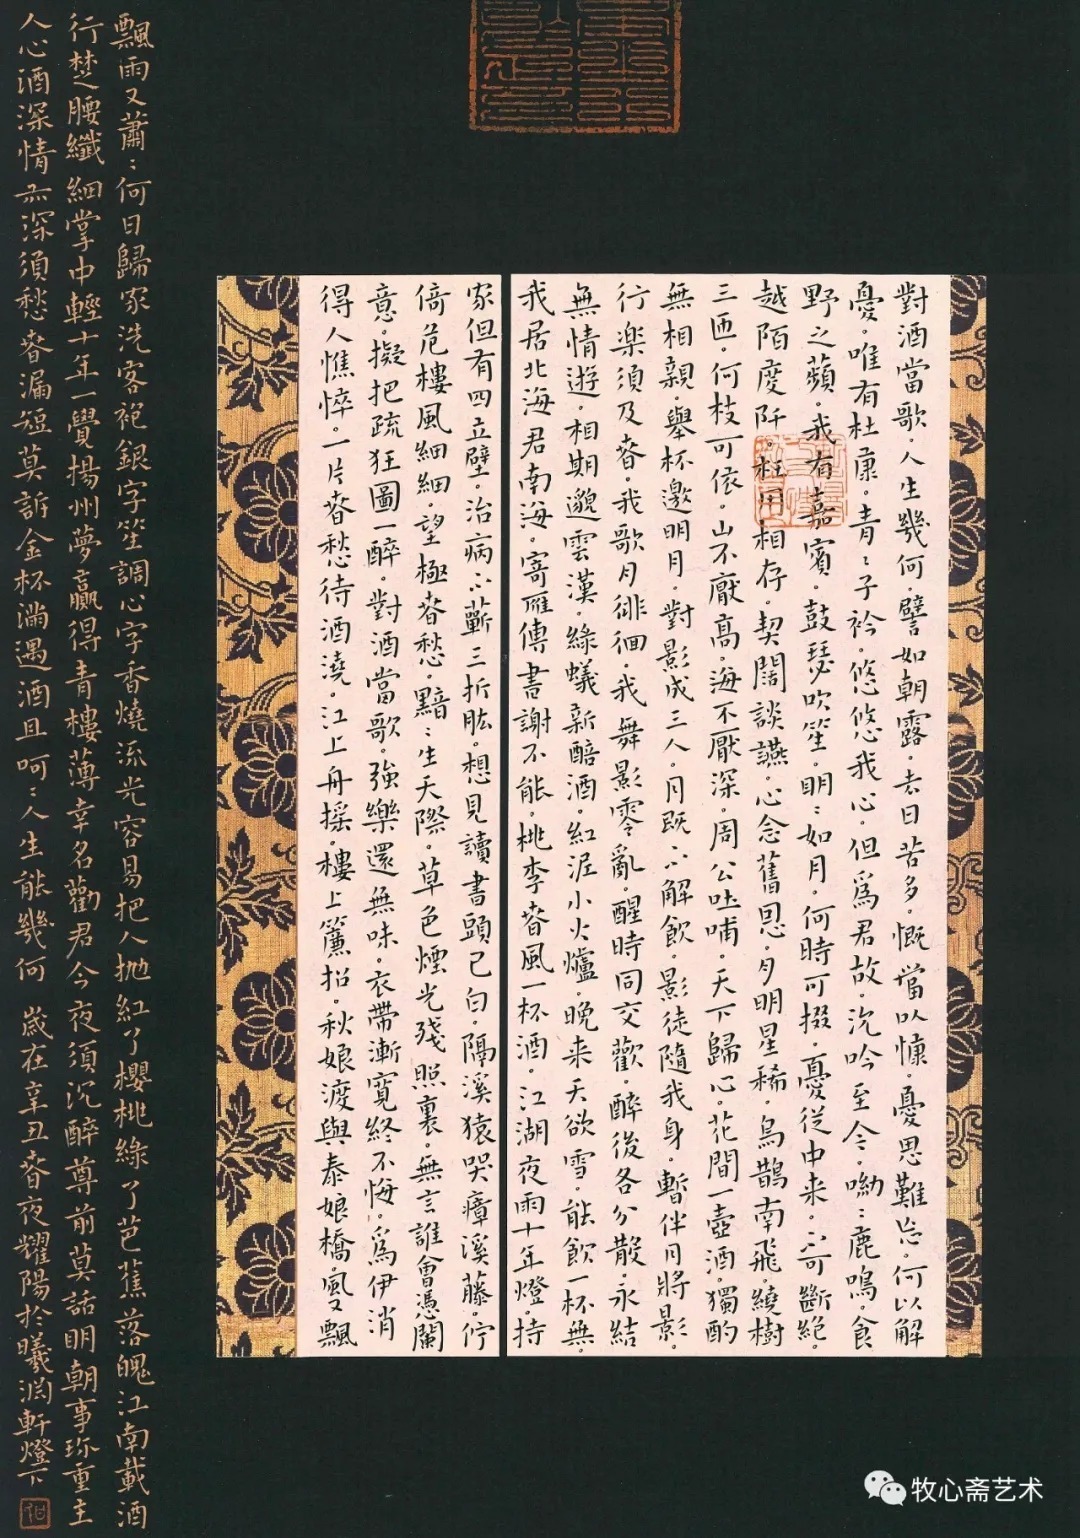 對酒當歌。人生幾何。譬如朝露。去日苦多。慨當以慷。憂思難忘。何以解
憂。唯有杜康。青〻子衿。悠悠我心。但爲君故。沉吟至今。呦〻鹿鳴。食
野之蘋。我有嘉賓。鼓瑟吹笙。明〻如月。何時可掇。憂從中來。不可斷絕。
越陌度阡。枉用相存。契闊談讌。心念舊恩。月明星稀。烏鵲南飛。繞樹
三匝。何枝可依。山不厭高。海不厭深。周公吐哺。天下歸心。花間一壺酒。獨酌
無相親。舉杯邀明月。對影成三人。月既不解飲。影徒隨我身。暫伴月將影。
行樂須及春。我歌月徘徊。我舞影零亂。醒時同交歡。醉後各分散。永結
無情遊。相期邈雲漢。綠蟻新醅酒。紅泥小火爐。晚来天欲雪。能飲一杯無。
我居北海君南海。寄雁傳書謝不能。桃李春風一杯酒。江湖夜雨十年燈。持
家但有四立壁。治病不蘄三折肱。想見讀書頭已白。隔溪猿哭瘴溪藤。佇
倚危樓風細細。望極春愁。黯〻生天際。草色煙光殘照裏。無言誰會憑闌
意。擬把疏狂圖一醉。對酒當歌。強樂還無味。衣帶漸寬終不悔。爲伊消
得人憔悴。一片春愁待酒澆。江上舟搖。樓上簾招。秋娘渡與泰娘橋。風又飄
飄雨又蕭〻何日歸家洗客袍銀字笙調心字香燒流光容易把人拋紅了櫻桃綠了芭蕉落魄江南載酒
行楚腰纖細掌中輕十年一覺揚州夢贏得青樓薄幸名勸君今夜須沉醉尊前莫話明朝事珎重主
人心酒深情亦深須愁春漏短莫訴金杯滿遇酒且呵〻人生能幾何 歲在辛丑春夜耀陽於曦淵軒燈下
牧心斋艺术